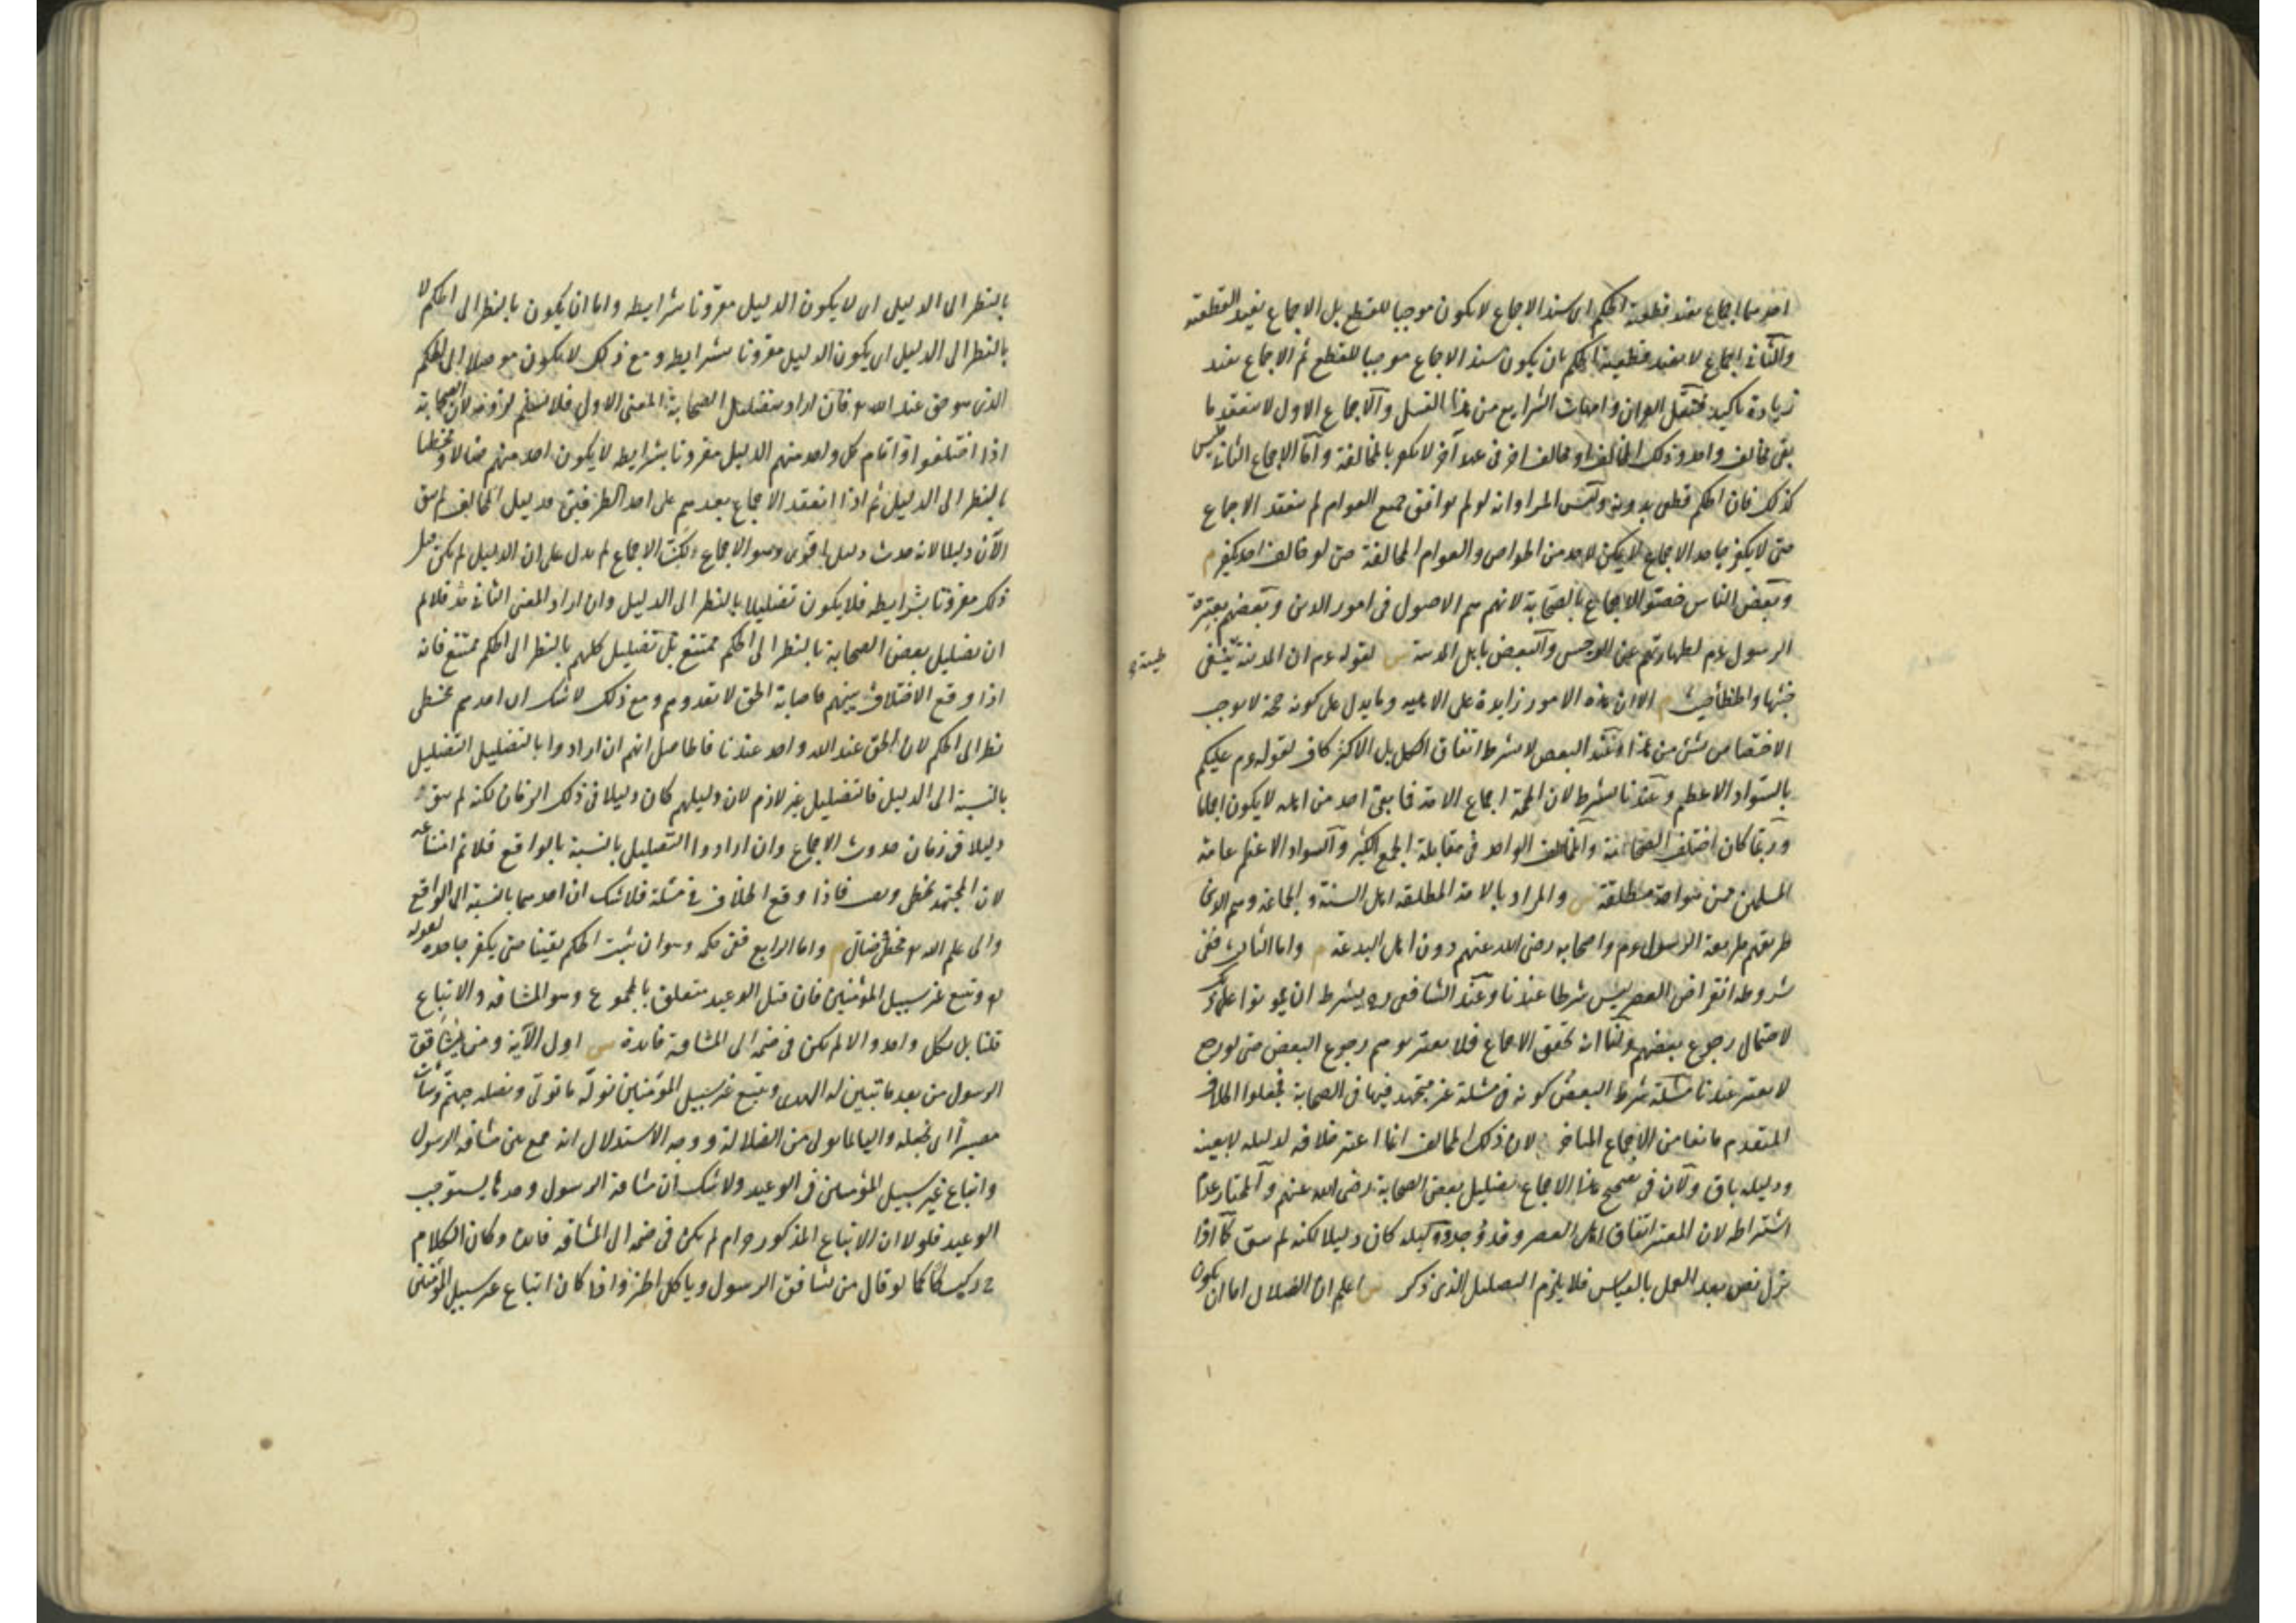 احدهما اجماع يفيد قطعية الحكم اى سند الاجماع لا يكون موجبا للقطع بل الاجماع يفيد القطعية
والثانى اجماع لا يفيد قطعية الحكم بان يكون سند الاجماع موجبا للقطع ثم الاجماع يفيد
زيادة تاكيد فنقل القران وامهات الشرايع من هذا القبيل والاجماع الاول لا ينعقد ما
بقى مخالف واحد وذلك المخالف او مخالف اخر فى عهد آخر لا يكفر بالمخالفة واما الاجماع الثانى فليس
كذلك فان الحكم قطعى بدونه وليس المراد انه لو لم يوافق جميع العوام لم ينعقد الاجماع
حتى لا يكفر جاحد الاجماع لا يمكن لاحد من الخواص والعوام المخالفة حتى لو خالف احد يكفر م
وبعض الناس خصوا الاجماع بالصحابة لانهم هم الاصول فى امور الدين وبعضهم بعترة
الرسول عم لطهارتهم عن الرجس والبعض باهل المدينة ش لقوله عم ان المدينة تنفى
طيبة
خبثها والخطأ خبث م الا ان هذه الامور زايدة على الاهلية وما يدل على كونه حجة لا يوجب
الاختصاص بشئ من هذا وعند البعض لا يشرط اتفاق الكل بل الاكثر كاف لقوله عم عليكم
بالسواد الاعظم وعندنا يشرط لان الحجة اجماع الامة فما بقى احد من اهله لا يكون اجماعا
وربما كان اختلف الصحابة والمخالف الواحد فى مقابلة الجمع الكثير والسواد الاعظم عامة
المسلمين ممن هو امة مطلقة ش والمراد بالامة المطلقة اهل السنة والجماعة وهم الذين
طريقهم طريقة الرسول عم واصحابه رضى الله عنهم دون اهل البدعة م واما الثالث ففى
شروطه انقراض العصر ليس شرطا عندنا وعند الشافعى ره يشرط ان يموتوا على ذلك
لاحتمال رجوع بعضهم ولنا انه تحقق الاجماع فلا يعتبر توهم رجوع البعض حتى لو رجع
لا يعتبر عندنا مسئلة شرط البعض كونه فى مسئلة غير مجتهد فيها فى الصحابة فجعلوا الخلاف
المتقدم مانعا من الاجماع المتاخر لان ذلك المخالف انما اعتبر خلافه لدليله لا بعينه
ودليله باق ولان فى تصحيح هذا الاجماع تضليل بعض الصحابة رضى الله عنهم والمختار عدم
اشتراطه لان المعتبر اتفاق اهل العصر وقد وجد ودليله كان دليلا لكنه لم يبق كما اذا
نزل نص بعد العمل بالقياس فلا يلزم التضليل الذى ذكر ش اعلم ان الضلال اما ان يكون
بالنظر الى الدليل اى لا يكون الدليل مقرونا بشرايطه واما ان يكون بالنظر الى الحكم لا
بالنظر الى الدليل اى يكون الدليل مقرونا بشرايطه ومع ذلك لا يكون موصلا الى الحكم
الذى هو حق عند الله فان اراد بتضليل الصحابة المعنى الاول فلا نسلم لزومه لان الصحابة
اذا اختلفوا واقام كل واحد منهم الدليل مقرونا بشرايطه لا يكون احد منهم ضالا ومخطئا
بالنظر الى الدليل ثم اذا انعقد الاجماع بعدهم على احد الطرفين فدليل المخالف لم يبق
الآن دليلا لانه حدث دليل اقوى وهو الاجماع لكن الاجماع لم يدل على ان الدليل لم يكن قبل
ذلك مقرونا بشرايطه فلا يكون تضليلا بالنظر الى الدليل وان اراد المعنى الثانى فلا نم
ان تضليل بعض الصحابة بالنظر الى الحكم ممتنع بل تضليل كلهم بالنظر الى الحكم ممتنع فانه
اذا وقع الاختلاف بينهم فاصابة الحق لا تعدوهم ومع ذلك لا شك ان احدهم مخطئ
نظرا الى الحكم لان الحق عند الله واحد عندنا فالحاصل انهم ان ارادوا بالتضليل التضليل
بالنسبة الى الدليل فالتضليل غير لازم لان دليلهم كان دليلا فى ذلك الزمان لكنه لم يبق
دليلا فى زمان حدوث الاجماع وان ارادوا التضليل بالنسبة بالواقع فلا نم امتناعه
لان المجتهد يخطئ ويصيب فاذا وقع الخلاف فى مسئلة فلا شك ان احدهما بالنسبة الى الواقع
والى علم الله مخطئ ضال م واما الرابع ففى حكمه وهو ان يثبت الحكم يقينا حتى يكفر جاحده لقوله
ويتبع غير سبيل المؤمنين فان قيل الوعيد متعلق بالمجموع وهو المشاقة والاتباع
قلنا بل بكل واحد والا لم يكن فى ضمه الى المشاقة فايدة ش اول الآية ومن يشاقق
الرسول من بعد ما تبين له الهدى ويتبع غير سبيل المؤمنين نوله ما تولى ونصله جهنم وساءت
مصيرا اى نجعله واليا لما تولى من الضلالة ووجه الاستدلال انه جمع بين مشاقة الرسول
واتباع غير سبيل المؤمنين فى الوعيد ولا شك ان مشاقة الرسول وحدها يستوجب
الوعيد فلولا ان الاتباع المذكور حرام لم يكن فى ضمه الى المشاقة فايدة وكان الكلام
ح ركيكا كما لو قال من يشاقق الرسول وياكل الخبز واذا كان اتباع غير سبيل المؤمنين